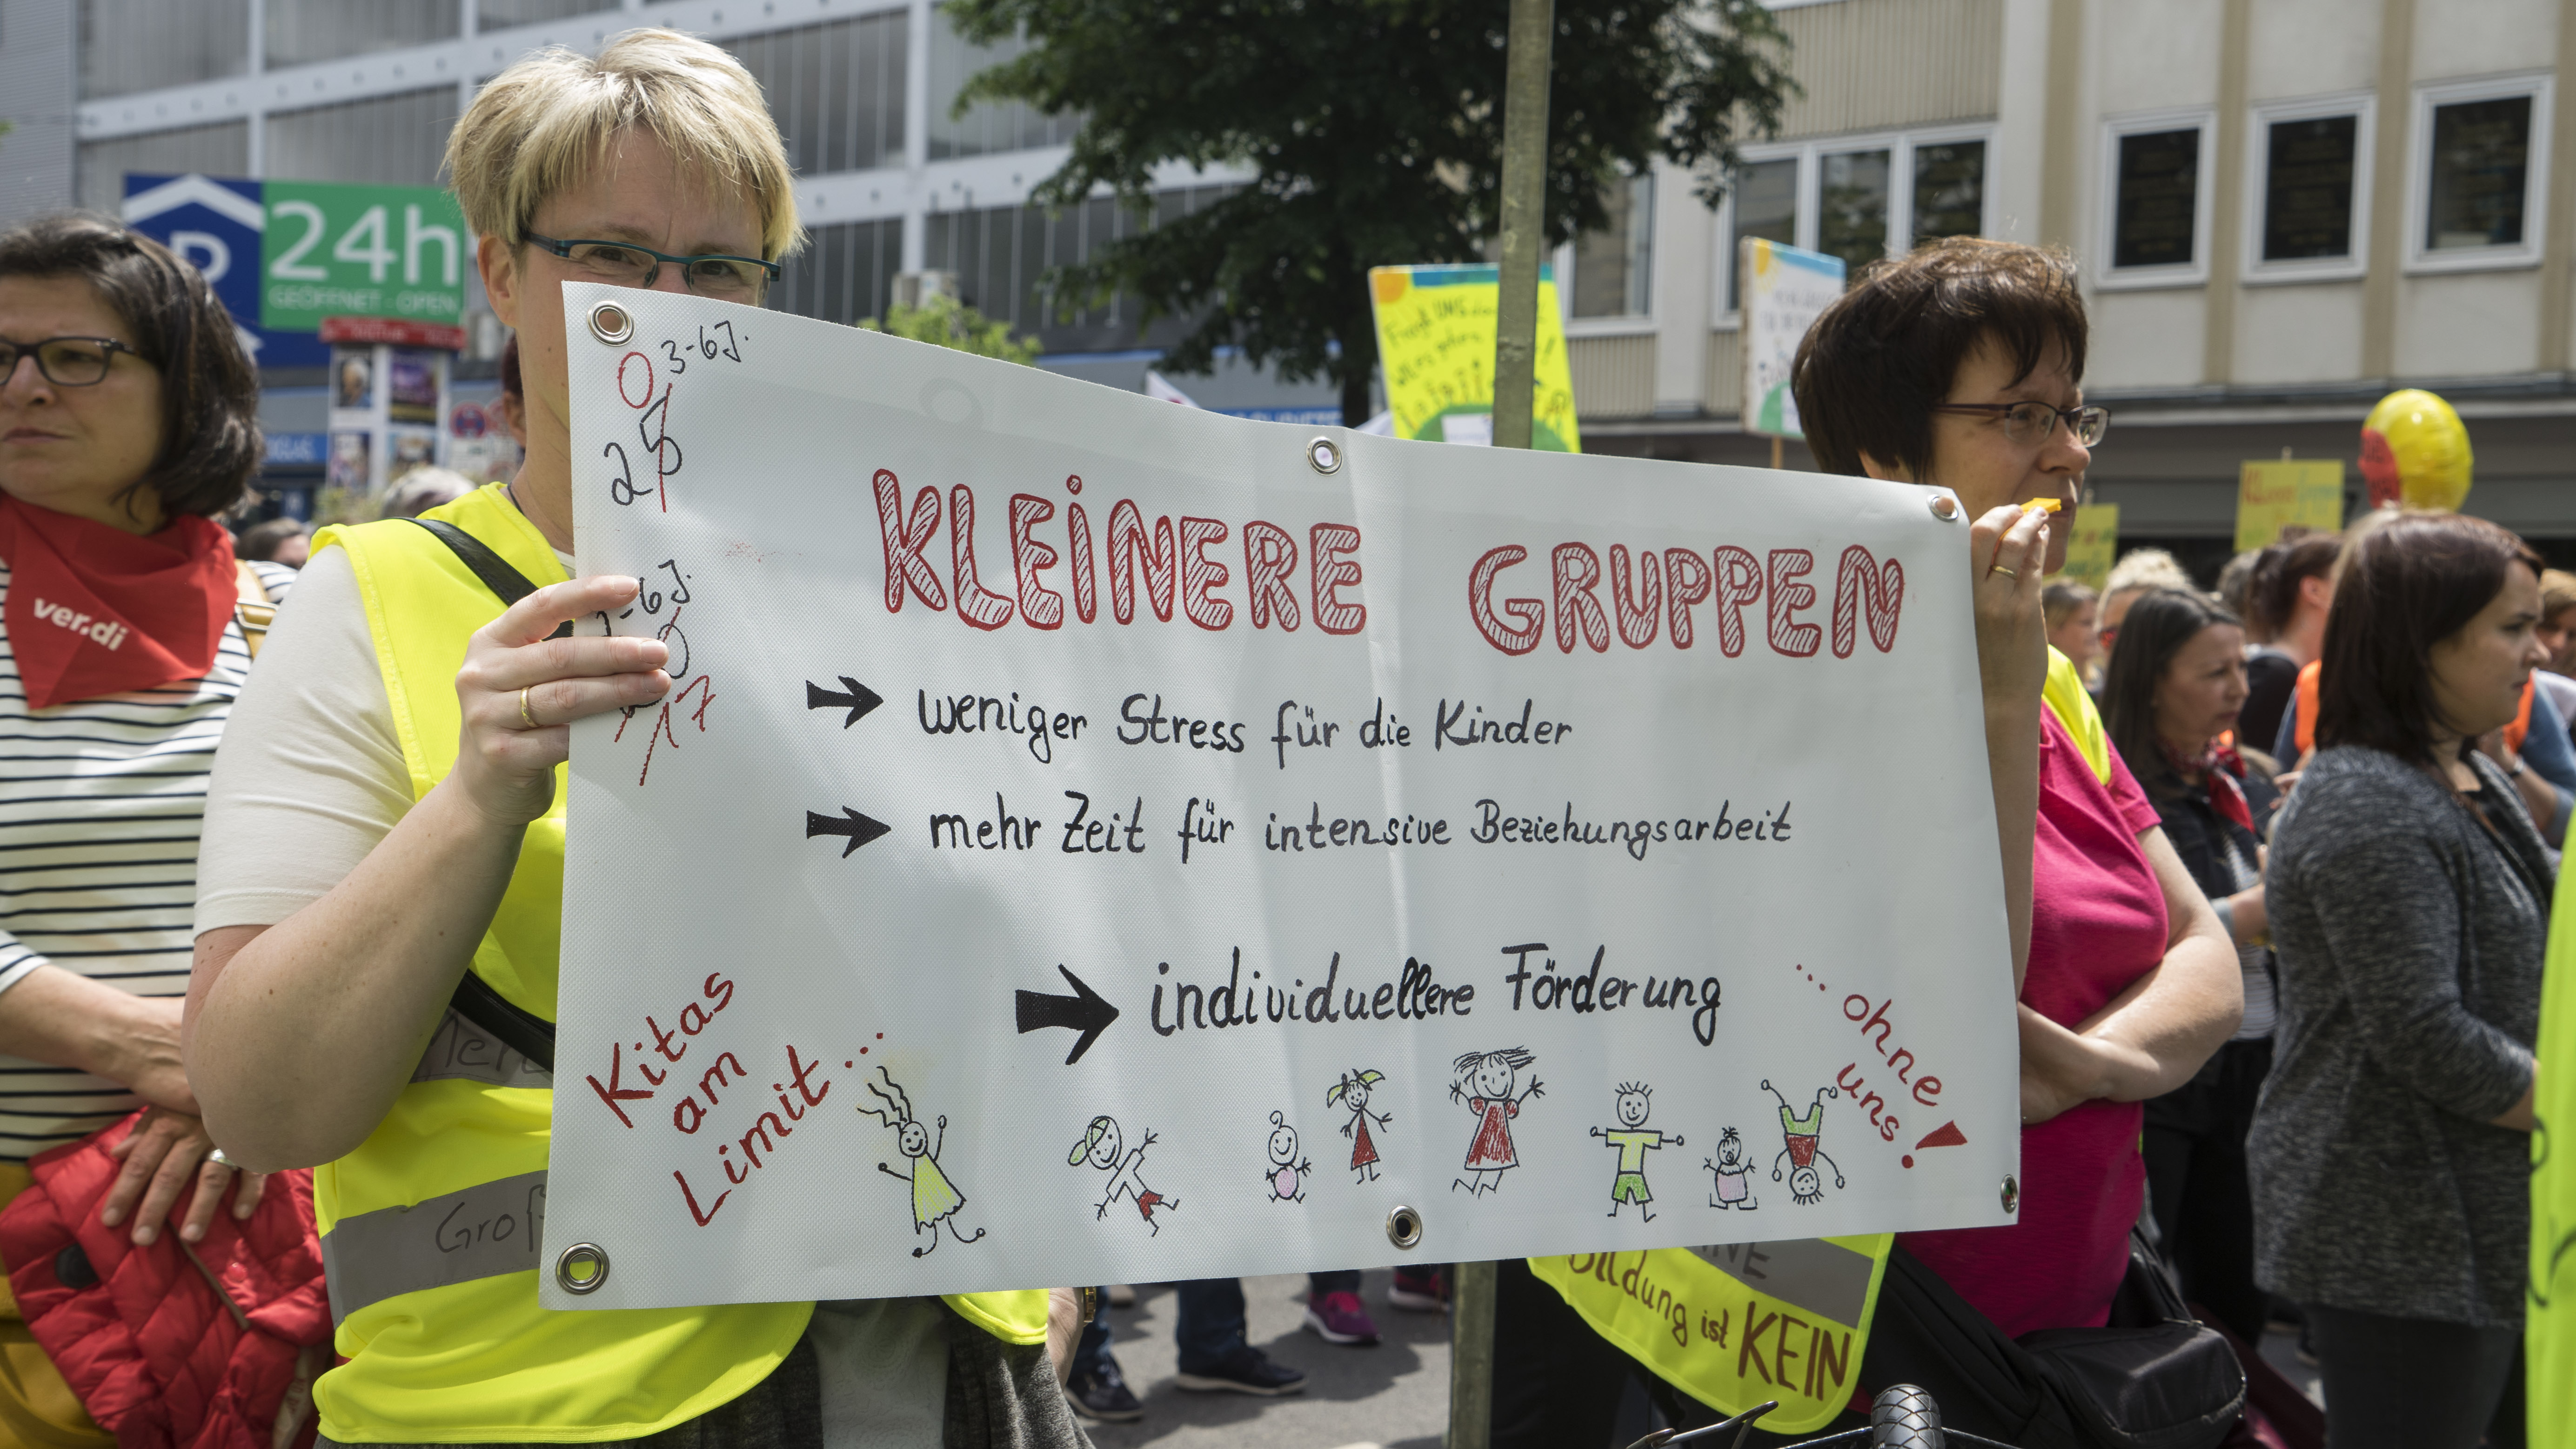 P
24h
GEÖFFNET - OPEN
ver.di
3-6J.
0
25
-6J.
17
KLEINERE GRUPPEN
weniger Stress für die Kinder
mehr Zeit für intensive Beziehungsarbeit
individuellere Förderung
Kitas
am
Limit...
... ohne
uns!
Groß
Bildung ist KEIN